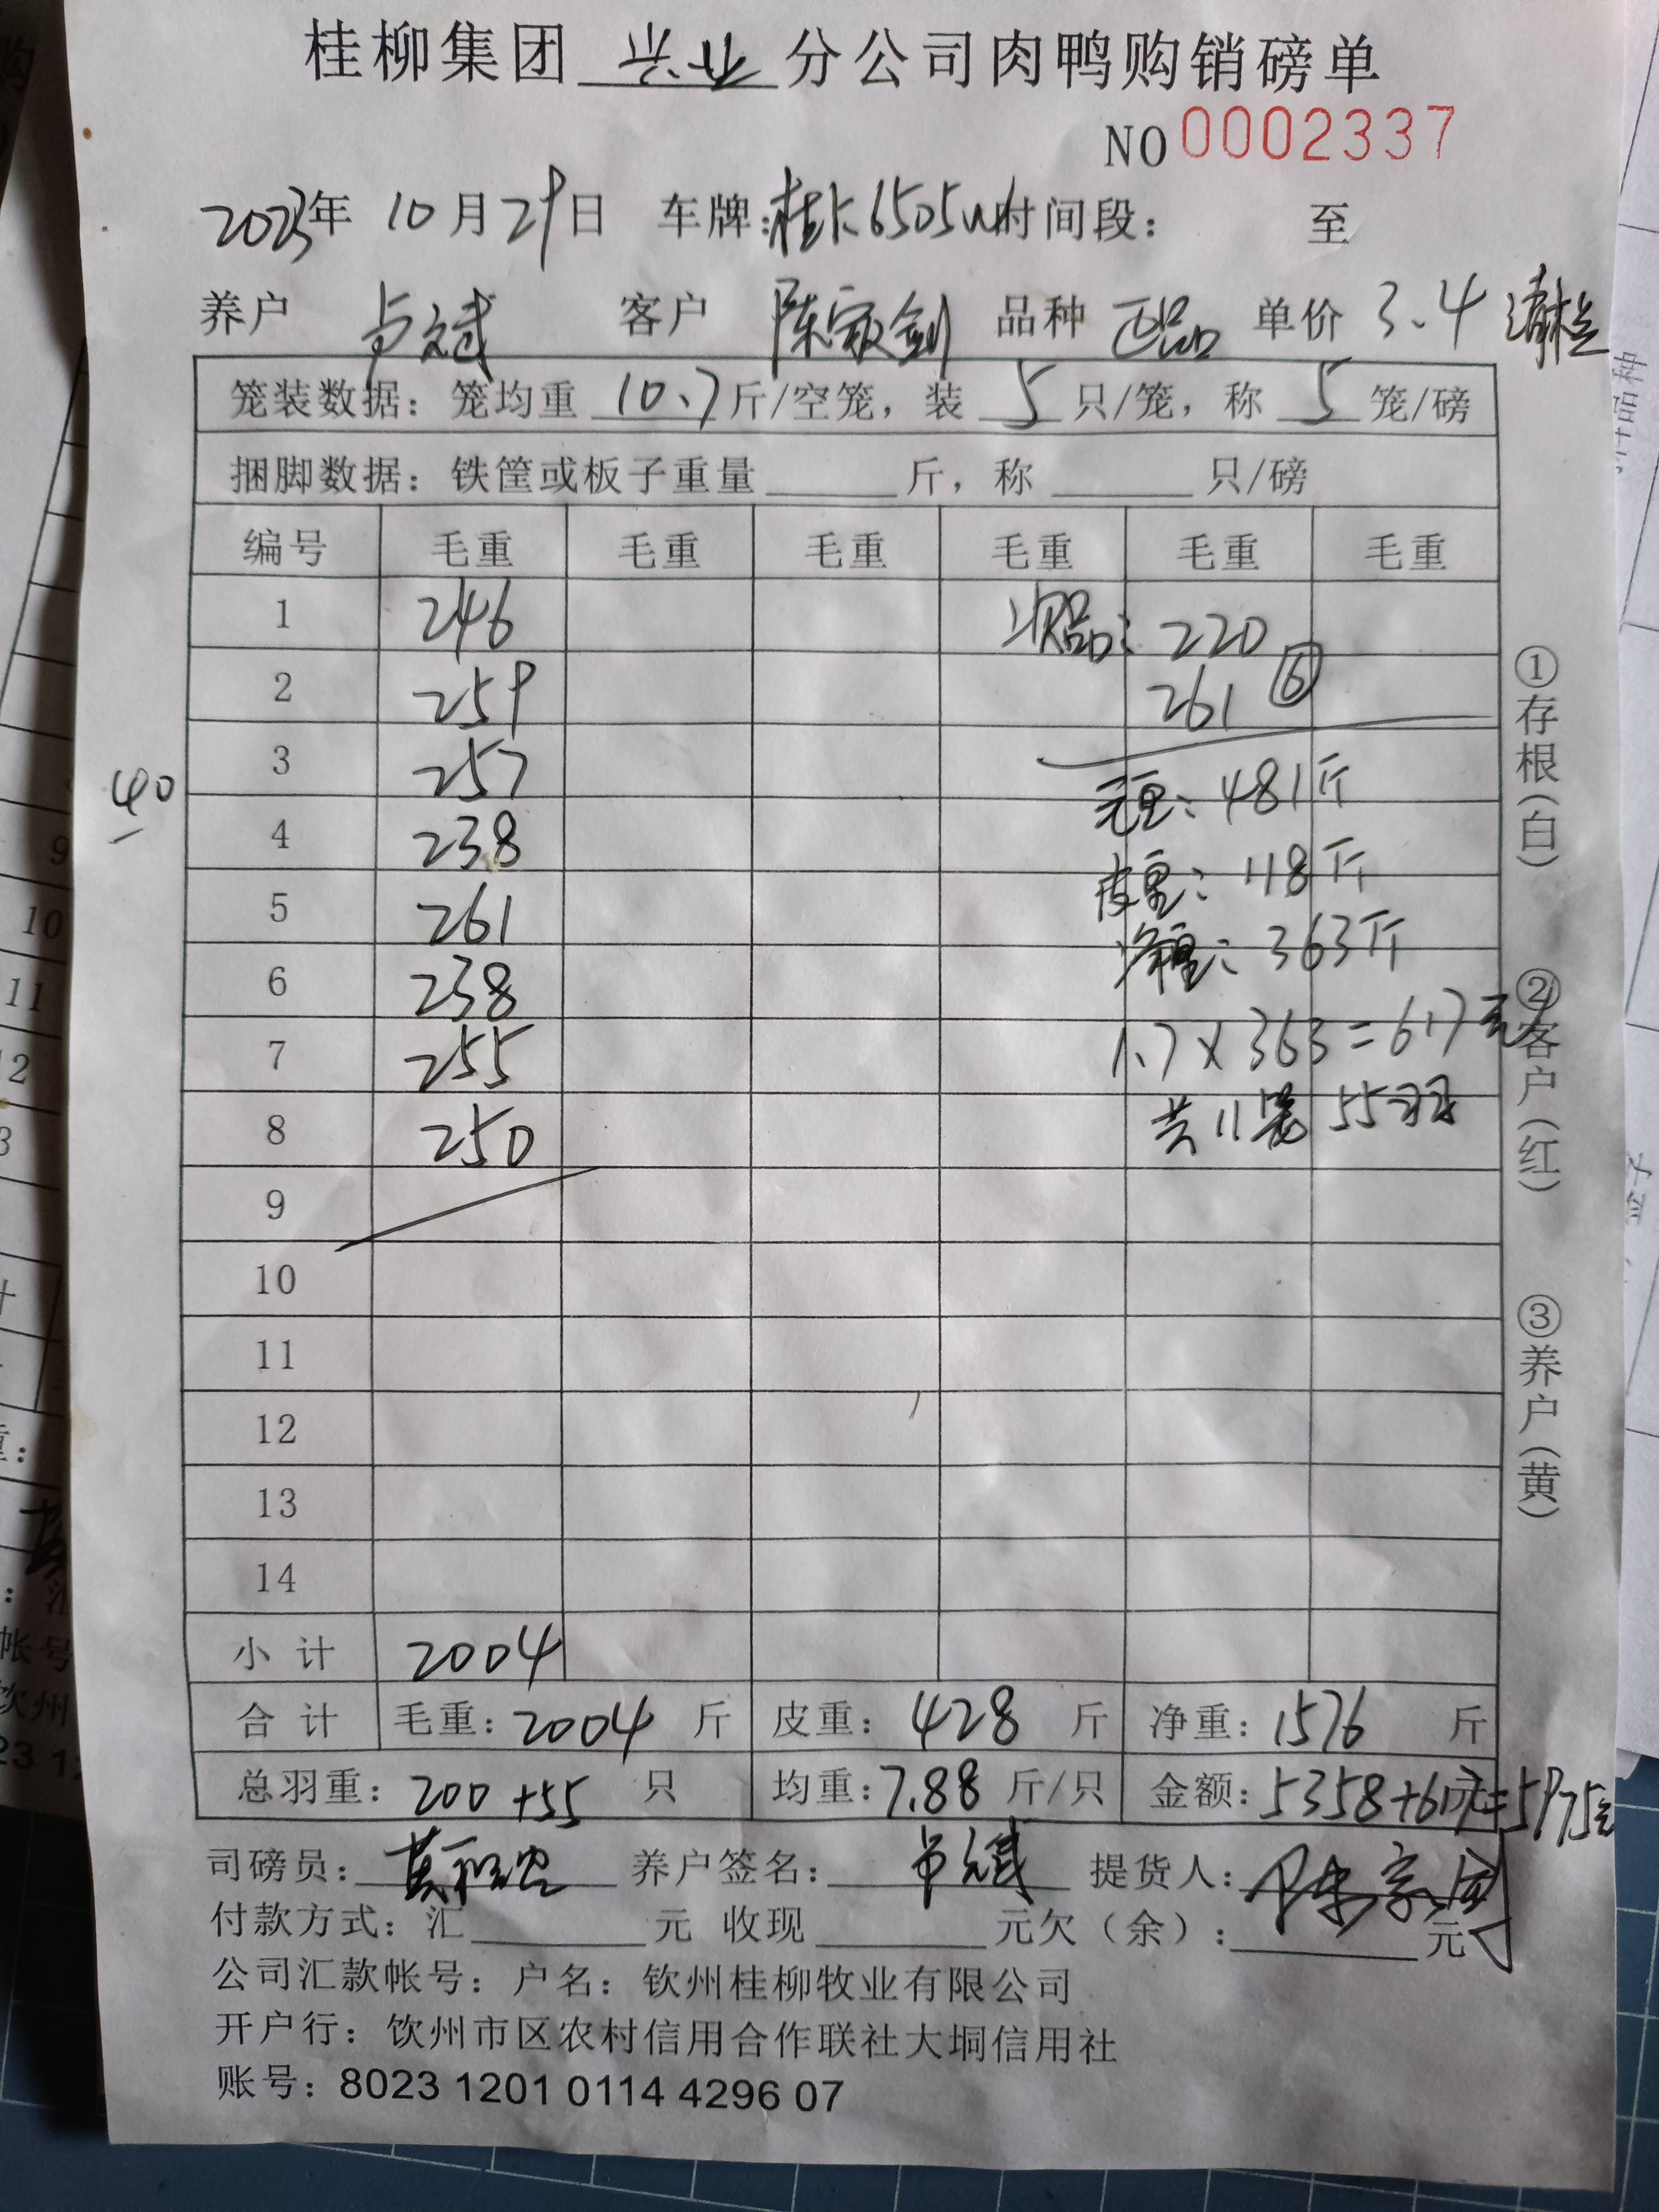 桂柳集团 兴业 分公司肉鸭购销磅单
NO 0002337
2023年 10月29日 车牌:桂K6505W 时间段: 至
养户 卢斌 客户 陈家剑 品种 正品 单价 3.4
笼装数据:笼均重 10.7 斤/空笼,装 5 只/笼,称 5 笼/磅
捆脚数据:铁筐或板子重量 斤,称 只/磅
编号 毛重 毛重 毛重 毛重 毛重 毛重
1 246 次品: 220
2 259 261 ⑥
3 257 毛重: 481斤
40
4 238 皮重: 118斤
5 261 净重: 363斤
6 238
7 255 1.7×363=617元
8 250 共11笼 55羽
9
10
11
12
13
14
小计 2004
合计 毛重: 2004 斤 皮重: 428 斤 净重: 1576 斤
总羽重: 200+55 只 均重: 7.88 斤/只 金额: 5358+617元=5975元
司磅员: 养户签名: 卢斌 提货人:
付款方式:汇 元 收现 元欠(余): 元
公司汇款帐号:户名:钦州桂柳牧业有限公司
开户行:饮州市区农村信用合作联社大垌信用社
账号:8023 1201 0114 4296 07
①存根(白)
②客户(红)
③养户(黄)